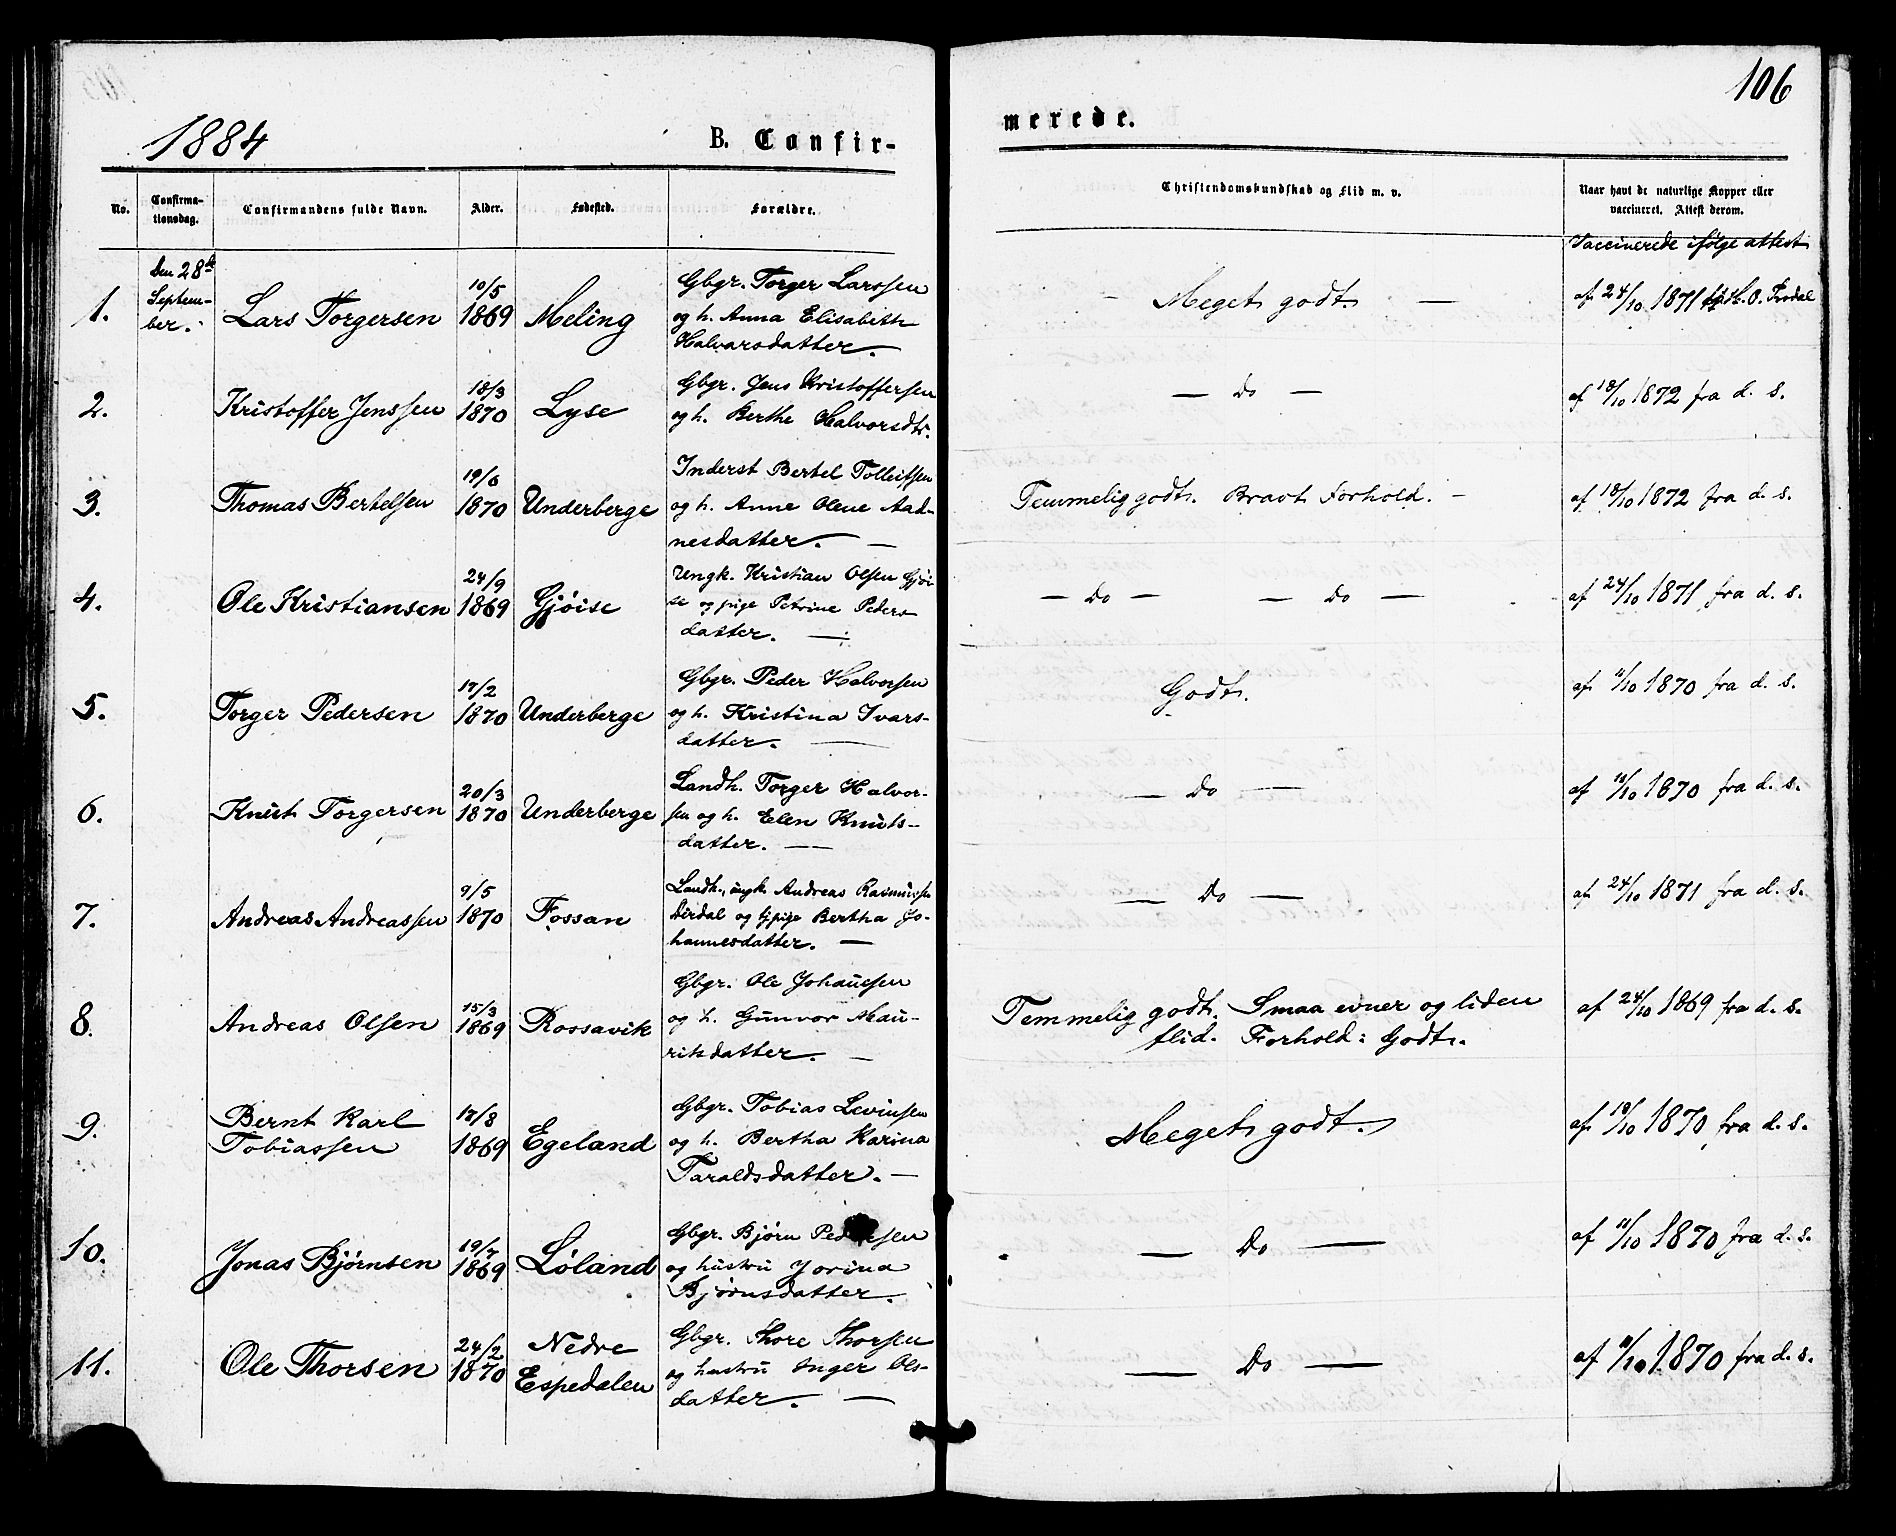 106
1884
B. Confir-
merede.
No.
Confirma-
tionsdag.
Confirmandens fulde Navn.
Alder.
Fødested.
Forældre.
Christendomskundskab og Flid m. v.
Naar havt de naturlige Kopper eller
vaccineret. Attest derom.
Vaccinerede ifølge attest
Den 28de
Septem-
ber.
1.
Lars Torgersen
10/5
1869
Meling
Gbgr. Torger Larssen
og h. Anna Elisabeth
Halvarsdatter. —
Meget godt. —
af 24/10 1871
2.
Kristoffer Jenssen
18/3
1870
Lyse
Gbgr. Jens Kristoffersen
og h. Berthe Halvorsdtr.
— Do —
af 18/10 1872 fra d. s.
3.
Thomas Bertelsen
1870
Underberge
Inderst Bertel Tolleitsen
og h. Anne Olene Aad-
nesdatter. —
Temmelig godt. Bravt Forhold. —
af 18/10 1872 fra d. s.
4.
Ole Kristiansen
24/9
1869
Gjøise
Ungk. Kristian Olsen Gjøi-
se og pige Petrine Peders
datter. —
— Do — — Do —
af 24/10 1871 fra d. s.
5.
Torger Pedersen
17/2
1870
Underberge
Gbgr. Peder Halvorsen
og h. Kristina Ivars-
datter. —
Godt.
af 11/10 1870 fra d. s.
6.
Knut Torgersen
20/3
1870
Underberge
Landh. Torger Halvor-
sen og h. Elen Knuts-
datter. —
— Do —
af 11/10 1870 fra d. s.
7.
Andreas Andreassen
9/5
1870
Fossan
Landh., ungk. Andreas Rasmussen
Dirdal og tjpige Bertha Jo-
hannesdatter. —
— Do —
af 24/10 1871 fra d. s.
8.
Andreas Olsen
15/3
1869
Rossavik
Gbgr. Ole Johanesen
og h. Gunvor Mau-
ritsdatter. —
Temmelig godt. Smaa evner og liden
flid. Forhold: Godt.
af 24/10 1869 fra d. s.
9.
Bernt Karl
Tobiassen
17/8
1869
Egeland
Gbgr. Tobias Levinsen
og h. Bertha Karina
Taraldsdatter. —
Meget godt.
af 1870 fra d. s.
10.
Jonas Bjørnsen
19/7
1869
Løland
Gbgr. Bjørn Pedersen
og hustru Jorina
Bjørnsdatter.
— Do —
af 11/10 1870 fra d. s.
11.
Ole Thorsen
24/2
1870
Nedre
Espedalen
Gbgr. Thore Thorsen
og hustru Inger Ols-
datter. —
— Do —
af 11/10 1870 fra d. s.